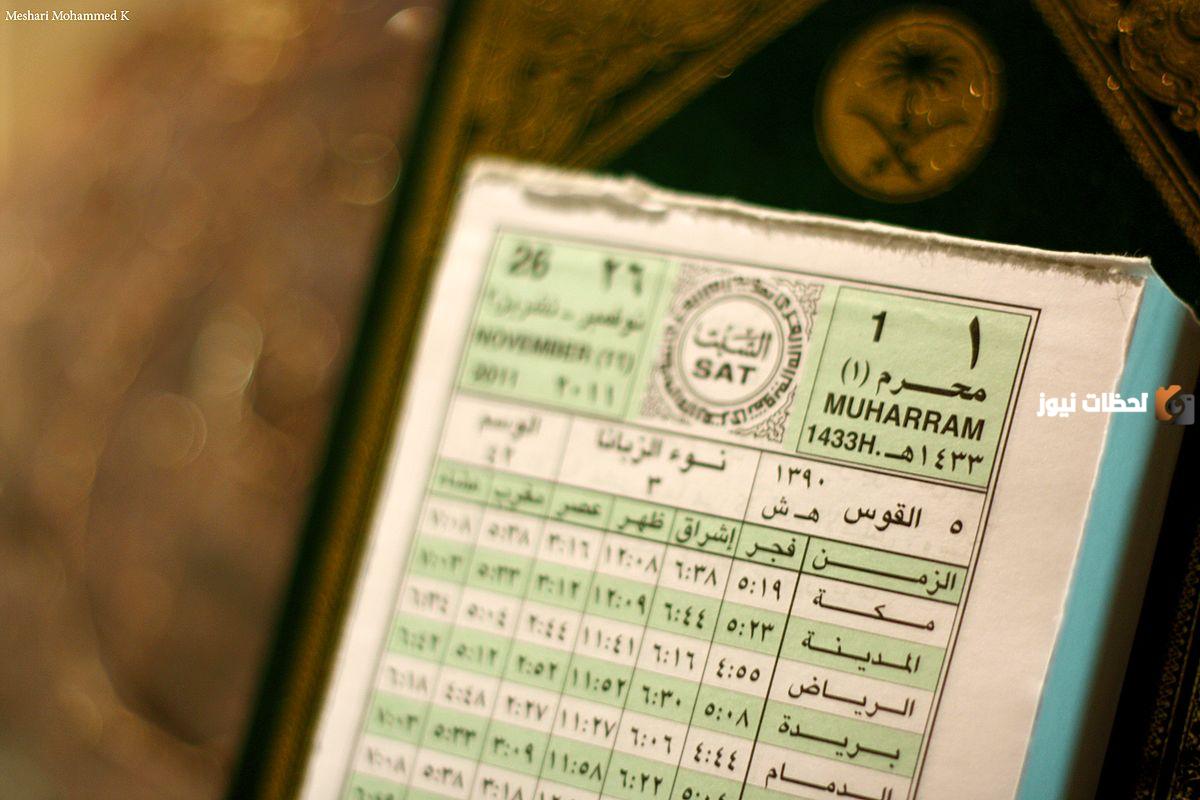 Meshari Mohammed K
١ 1
محرم (١)
MUHARRAM
1433H. ١٤٣٣هـ
السبت
SAT
٢٦ 26
نوفمبر - تشرين٢
NOVEMBER (11)
2011 ٢٠١١
لحظات نيوز
٥ القوس ١٣٩٠ هـ ش
نوء الزبانا ٣
الوسم ٤٢
الزمن فجر إشراق ظهر عصر مغرب عشاء
مكة ٥:١٩ ٦:٣٨ ١٢:٠٨ ٣:١٦ ٥:٣٨ ٧:٠٨
المدينة ٥:٢٣ ٦:٤٤ ١٢:٠٩ ٣:١٢ ٥:٣٣ ٧:٠٣
الرياض ٤:٥٥ ٦:١٦ ١١:٤١ ٢:٤٤ ٥:٠٤ ٦:٣٤
بريدة ٥:٠٨ ٦:٣٠ ١١:٥٢ ٢:٥٢ ٥:١٢ ٦:٤٢
الدمام ٤:٤٤ ٦:٠٦ ١١:٢٧ ٢:٢٧ ٤:٤٨ ٦:١٨
٦:٢٢ ١١:٥٨ ٣:٠٩ ٥:٣٣ ٧:٠٣
٣:١٨ ٥:٣٨ ٧:٠٨